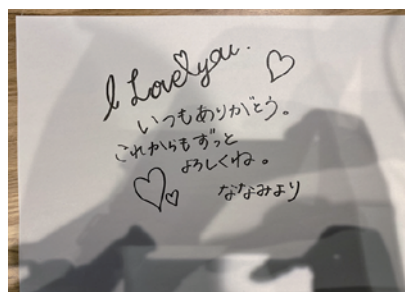 I Love you.
いつもありがとう。
これからもずっと
よろしくね。
ななみより